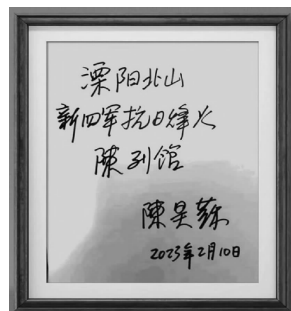 溧阳北山
新四军抗日烽火
陳列馆
陳昊蘇
2023年2月10日